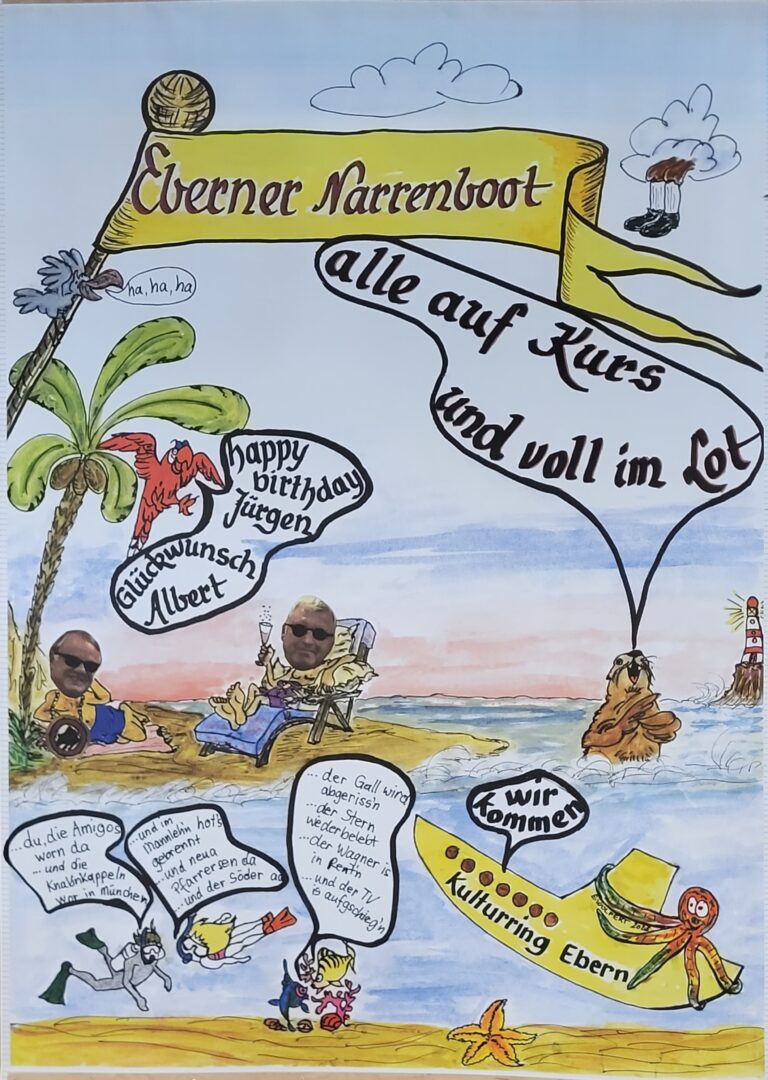 Eberner Narrenboot
ha, ha, ha
alle auf Kurs
und voll im Lot
happy
birthday
Jürgen
Glückwunsch
Albert
... du, die Amigos
worn da
... und die
Knabnkappeln
war in München
...und im
Mannlehin hot's
gebrennt
...und neua
Pfarrersen da
...und der Söder aa
... der Gall wird
abgeriss'n
...der Stern
wiederbelebt
...der Wagner is
in Rentn
...und der TV
is aufgschieg'n
wir
kommen
Kulturring Ebern